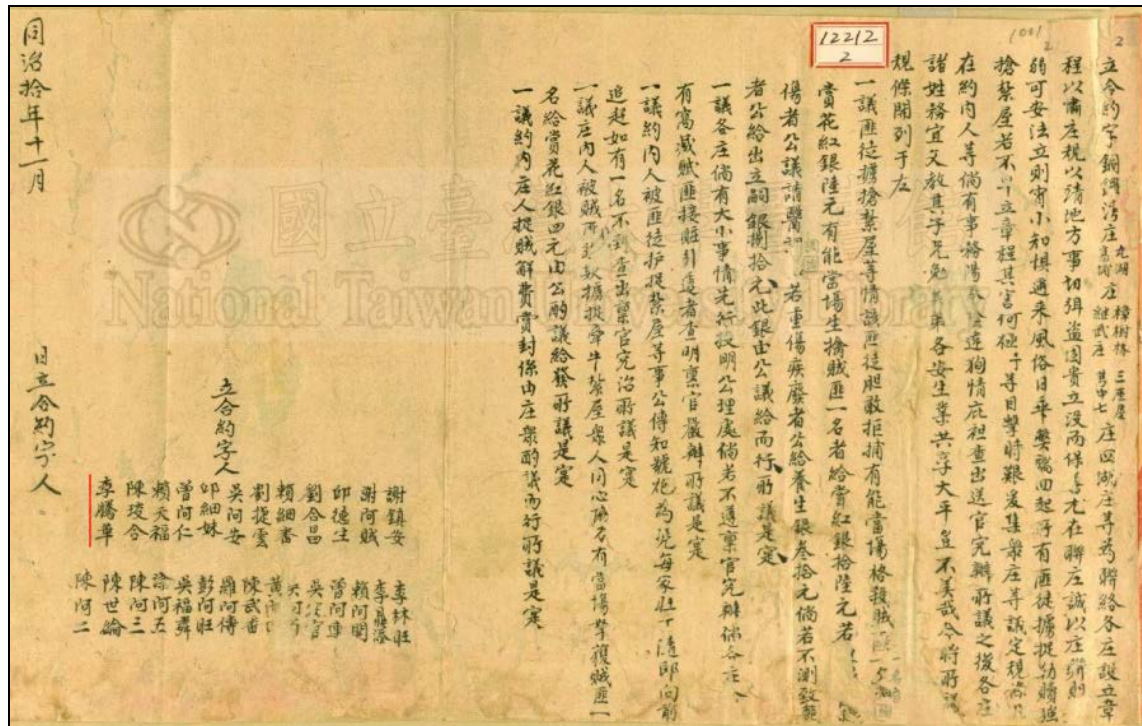 立合約字銅鑼灣庄九湖庄樟樹林三座屋庄四湖庄等為聯絡各庄設立章
程以肅庄規以清地方事切弭盜固貴立設而保善尤在聯庄誠以庄聯則
弱可安法立則宵小知懼邇來風俗日乖弊竊四起所有匪徒擄捉勒贖
搶紮屋若不早立章程其害何極予等目擊時艱爰集眾庄等議定規
在約內人等倘有事務徇情庇袒查出送官究辦所議之後各庄
諸姓務宜父教其子兄勉其弟各安生業共享太平豈不美哉今將所議
規條開列于左
一議匪徒擄搶紮屋等情該匪徒胆敢拒捕有能當場格殺賊匪一名
賞花紅銀陸元有能當場生擒賊匪一名者給賞紅銀拾陸元若
傷者公議請醫 若重傷疾廢者公給養生銀叁拾元倘若不測致斃
者公給出立嗣銀捌拾元此銀由公議給而行所議是寔
一議各庄倘有大小事情先行投明公理處倘若不遵稟官究辦倘各庄
有窩藏賊匪接贓引透者查明稟官嚴辦所議是寔
一議約內人被匪徒擄捉紮屋等事公傳知號炮為說每家壯丁隨即向前
追趕如有一名不到查出稟官究治所議是寔
一議庄內人被賊 擄捉牽牛紮屋眾人同心 有當場拏獲賊匪一
名給賞花紅銀四元由公酌議給發所議是寔
一議約內庄人捉賊解費賞封係由庄眾酌議而行所議是寔
立合約字人
謝鎮安
謝阿賊
邱德生
劉合昌
賴細番
劉捉雲
吳阿安
邱細妹
曾阿仁
賴天福
陳埈合
李騰華
李林旺
李鼎
賴阿
曾阿
吳 官
黃阿
陳武番
羅阿傳
彭阿旺
吳福壽
涂阿五
陳阿三
陳世綸
陳阿二
同治拾年十一月 日立合約字人
12212
2
1001
2
2
國立臺灣大學圖書館
National Taiwan University Library